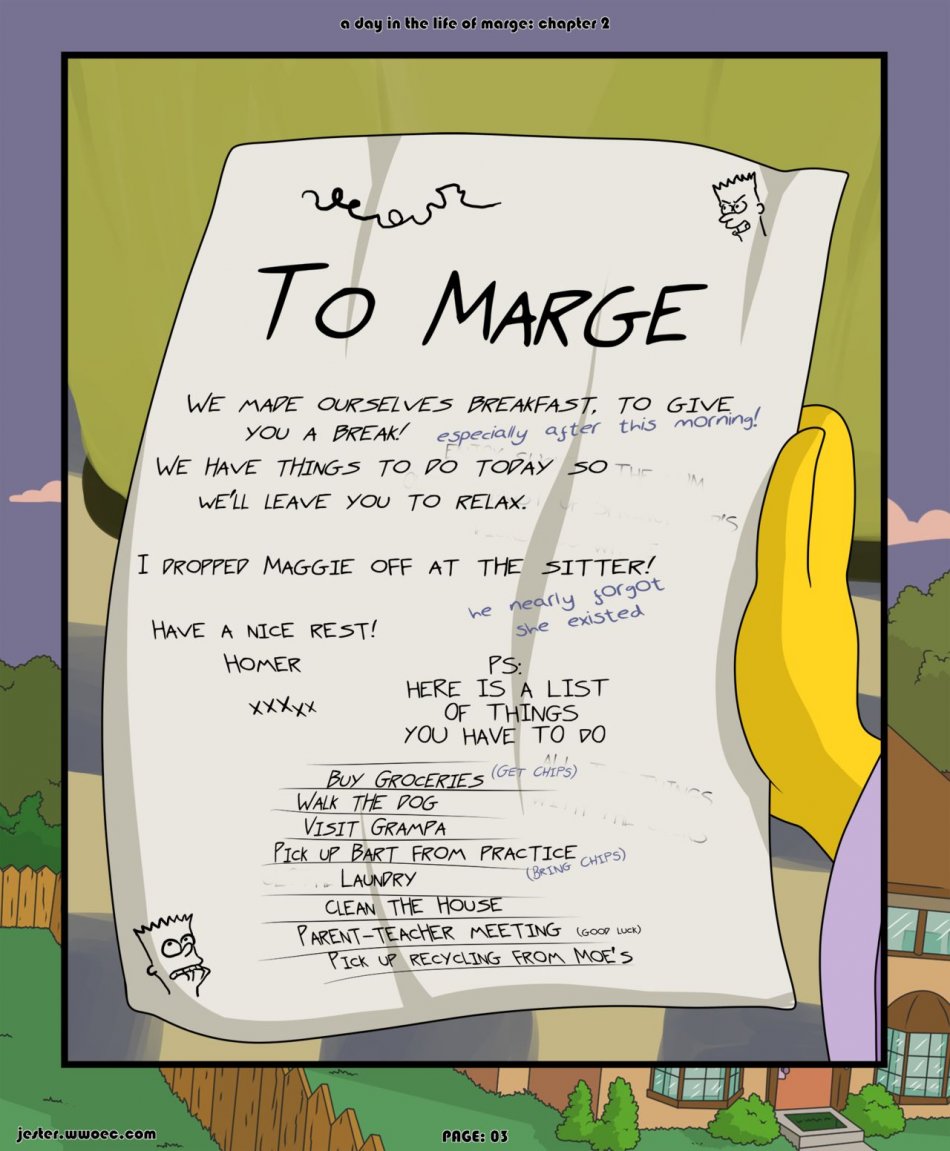 a day in the life of marge: chapter 2
To Marge
We made ourselves breakfast, to give
you a break! especially after this morning!
We have things to do today so
we'll leave you to relax.
I dropped Maggie off at the sitter!
he nearly forgot
she existed
Have a nice rest!
Homer
xxxxx
PS:
Here is a list
of things
you have to do
Buy Groceries (Get chips)
Walk the dog
Visit Grampa
Pick up Bart from practice
(Bring chips)
Laundry
clean the House
Parent-Teacher meeting (good luck)
Pick up recycling from Moe's
jester.wwoec.com
PAGE: 03